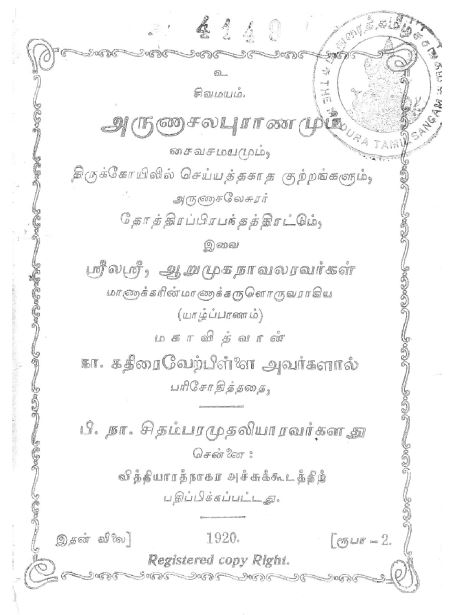 4140
மதுரைத் தமிழ்ச் சங்கம்
THE MADURA TAMIL SANGAM
உ
சிவமயம்.
அருணாசலபுராணமும்
சைவசமயமும்,
திருக்கோயிலில் செய்யத்தகாத குற்றங்களும்,
அருணாசலேசுரர்
தோத்திரப்பிரபந்தத்திரட்டும்,
இவை
ஸ்ரீலஸ்ரீ, ஆறுமுகநாவலரவர்கள்
மாணாக்கரின்மாணாக்கருளொருவராகிய
(யாழ்ப்பாணம்)
மகாவித்வான்
நா. கதிரைவேற்பிள்ளை அவர்களால்
பரிசோதித்ததை,
பி. நா. சிதம்பரமுதலியாரவர்களது
சென்னை:
வித்தியாரத்நாகர அச்சுக்கூடத்திற்
பதிப்பிக்கப்பட்டது.
1920.
இதன் விலை] [ரூபா – 2.
Registered copy Right.